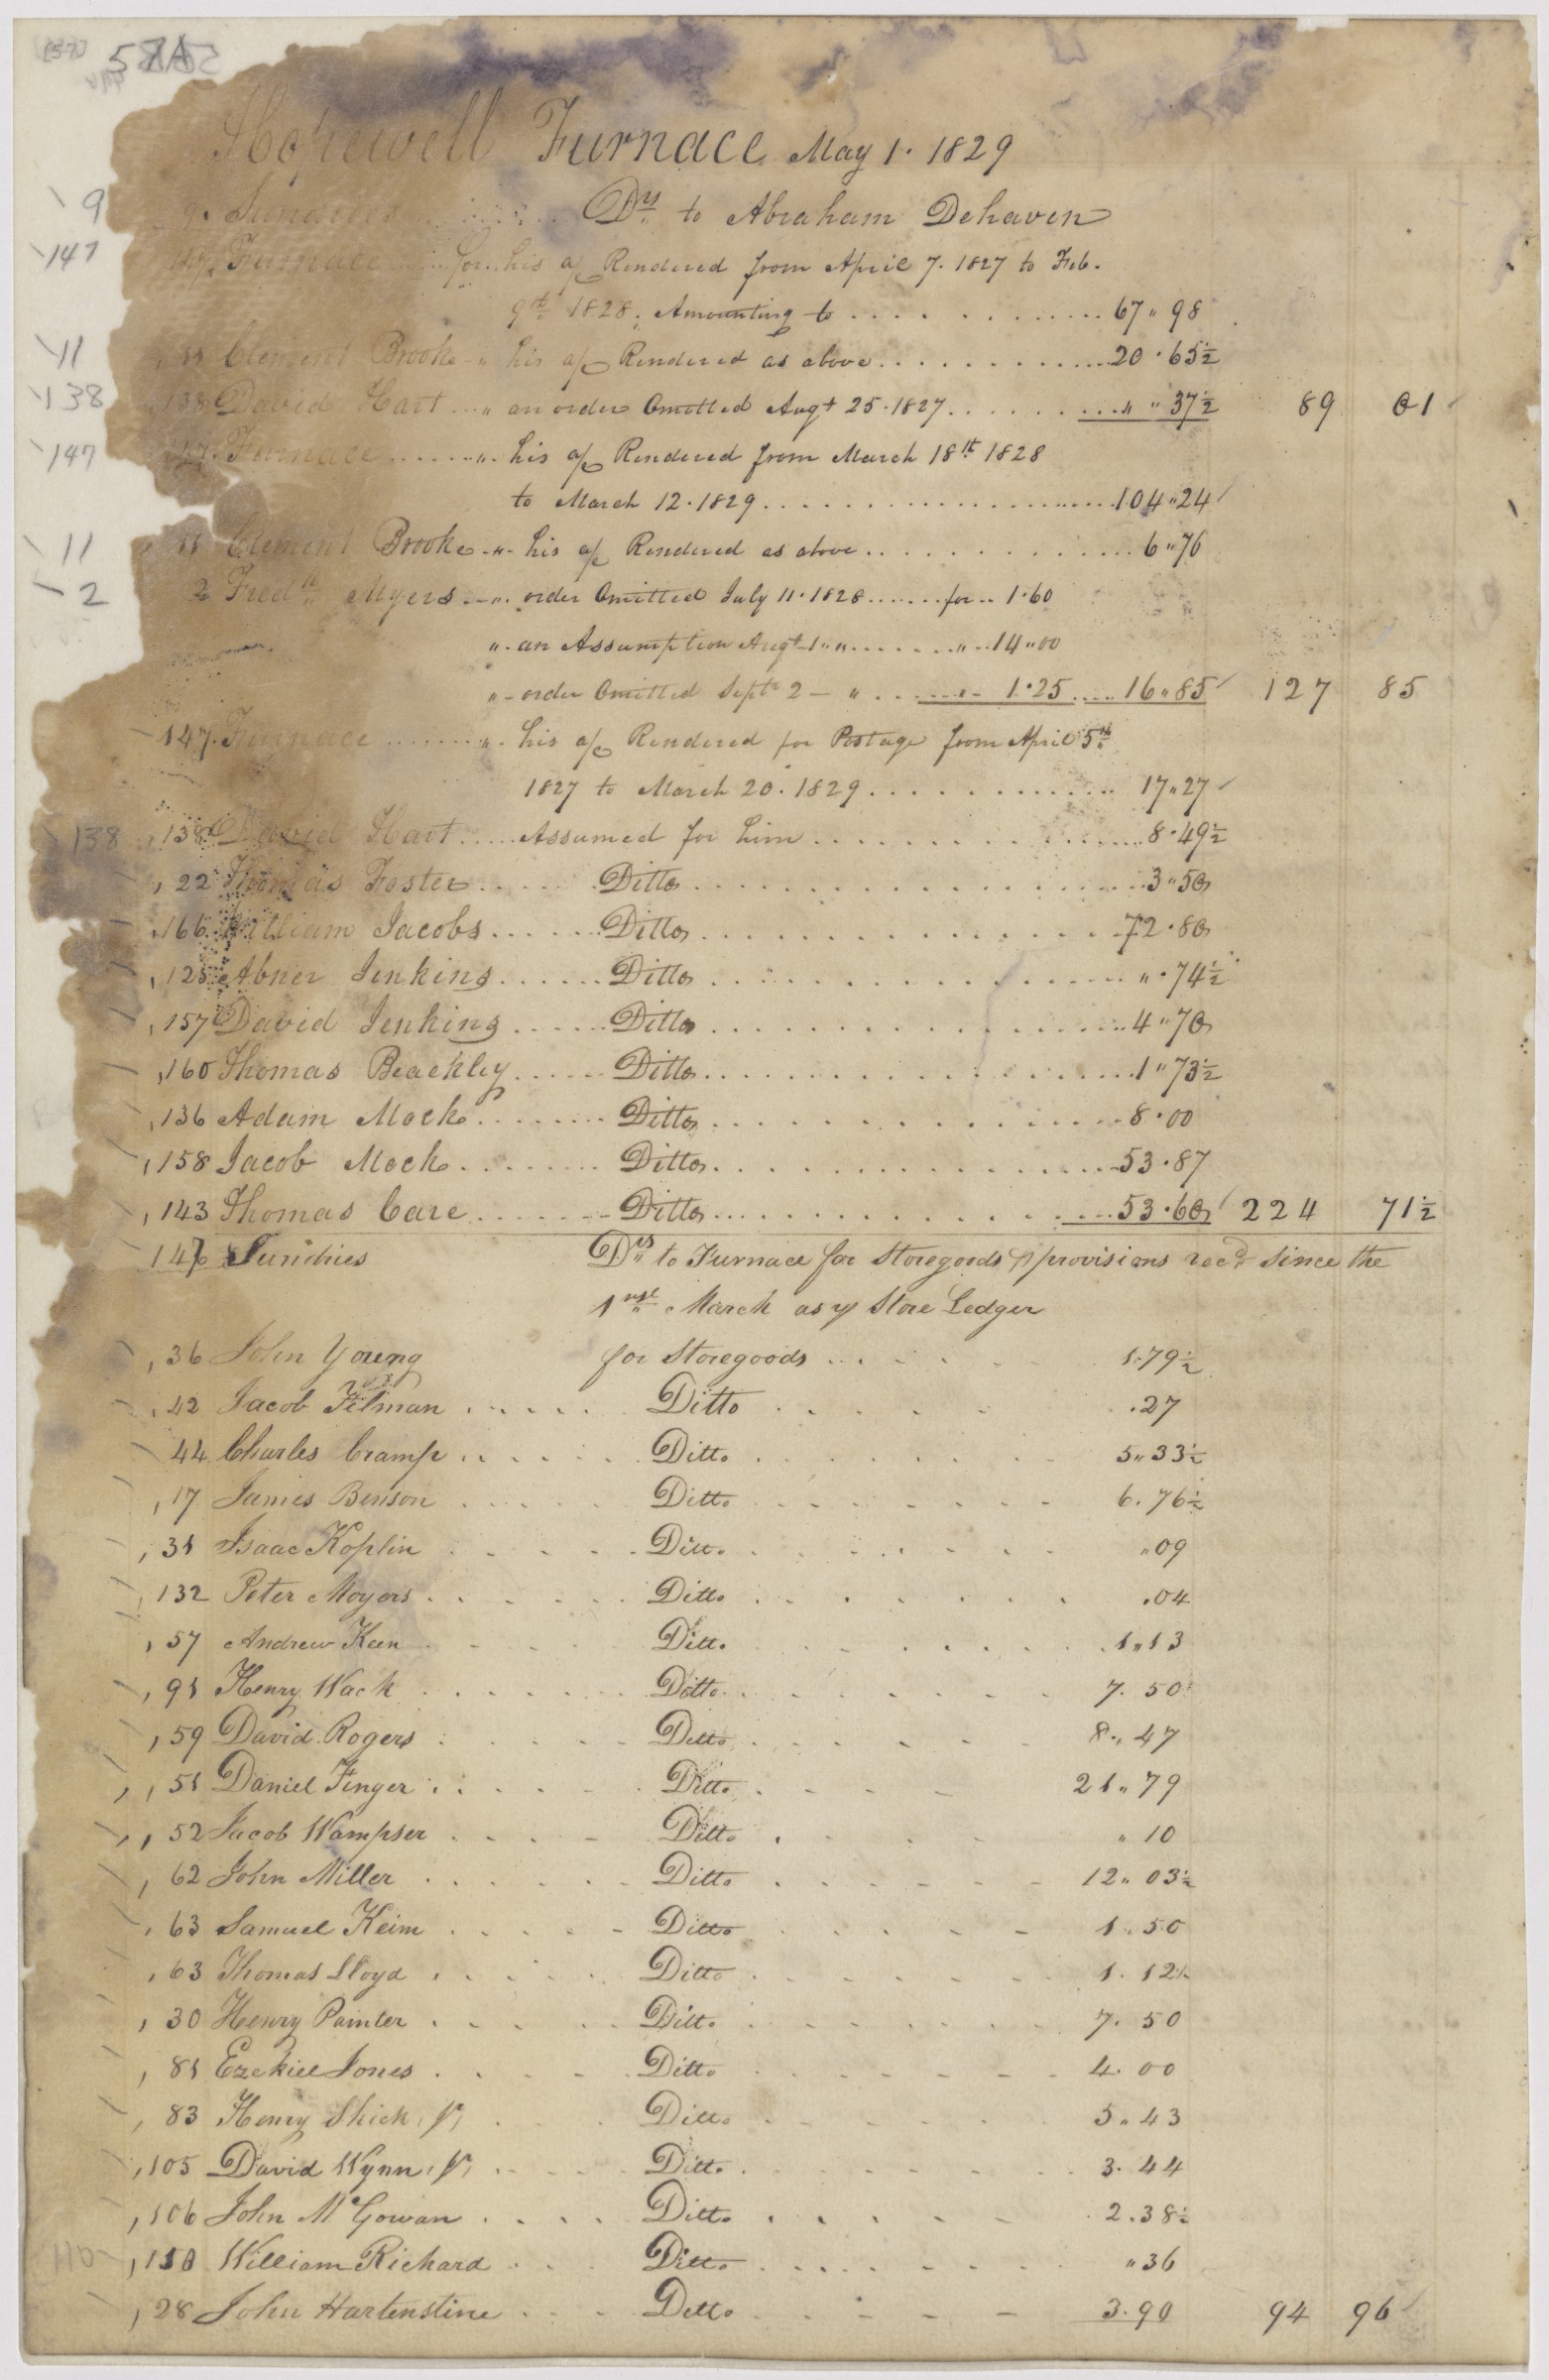 57A
Hopewell Furnace May 1. 1829
9 9. Sundries Drs to Abraham Dehaven
147 147. Furnace for his a/c Rendered from April 7. 1827 to Feb.
9th 1828. Amounting to 67 " 98
11 11 Clement Brooke " his a/c Rendered as above 20 . 65½
138 138 David Hart " an order Omitted Augt 25. 1827 " " 37½ 89 01
147 147. Furnace " his a/c Rendered from March 18th 1828
to March 12. 1829 104 " 24
11 11 Clement Brooke " his a/c Rendered as above 6 " 76
2 2 Fredk Myers " order Omitted July 11. 1828 for 1.60
" an Assumption Augt 1 " " " 14 " 00
" order Omitted Septr 2 " " 1.25 16 " 85 127 85
147. Furnace " his a/c Rendered for Postage from April 5th
1827 to March 20. 1829 17 " 27
138 138 David Hart Assumed for him 8 . 49½
22 Thomas Foster Ditto 3 " 50
166 William Jacobs Ditto 72 . 80
125 Abner Jenkins Ditto " . 74½
157 David Jenkins Ditto 4 " 70
160 Thomas Beackley Ditto 1 " 73½
136 Adam Mock Ditto 8 . 00
158 Jacob Mock Ditto 53 . 87
143 Thomas Care Ditto 53 . 60 224 71½
147 Sundries Drs to Furnace for Storegoods & provisions recd since the
1rst March as p Store Ledger
36 John Young for Storegoods 1.79½
42 Jacob Filman Ditto .27
44 Charles Cramp Ditto 5 " 33½
17 James Benson Ditto 6. 76½
31 Isaac Koplin Ditto " 09
132 Peter Moyers Ditto .04
57 Andrew Keen Ditto 1 " 13
91 Henry Wack Ditto 7. 50
59 David Rogers Ditto 8 " 47
51 Daniel Finger Ditto 21 " 79
52 Jacob Wampser Ditto " 10
62 John Miller Ditto 12 " 03½
63 Samuel Keim Ditto 1 . 50
63 Thomas Lloyd Ditto 1. 12½
30 Henry Painter Ditto 7. 50
81 Ezekiel Jones Ditto 4. 00
83 Henry Shick, Jr, Ditto 5 " 43
105 David Wynn, Jr, Ditto 3. 44
106 John McGowan Ditto 2.38½
110 110 William Richard Ditto " 36
28 John Hartenstine Ditto 3.90 94 96